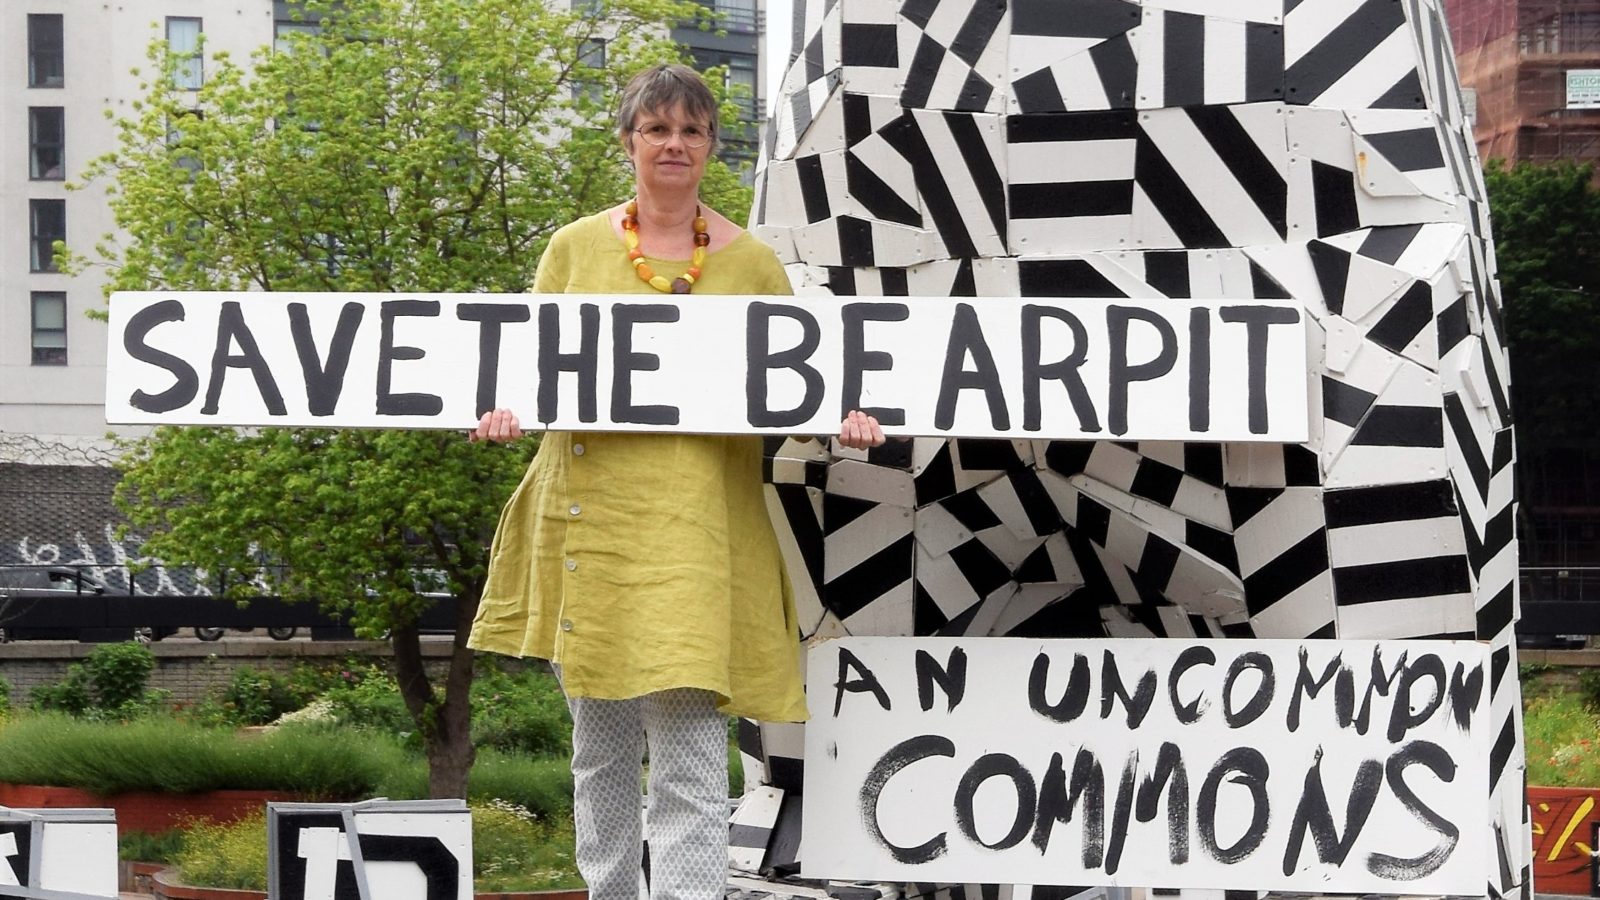 SAVE THE BEARPIT
AN UNCOMMON
COMMONS